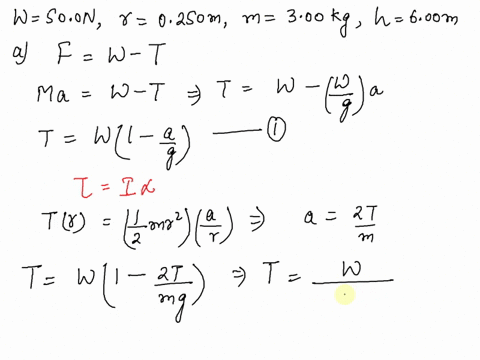 W=50.0N, r=0.250m, m=3.00kg, h=6.00m
a) F = W-T
Ma = W-T ⇒ T = W - (W/g)a
T = W(1 - a/g) —— ①
τ = Iα
T(r) = (1/2 mr²)(a/r) ⇒ a = 2T/m
T = W(1 - 2T/mg) ⇒ T = W/